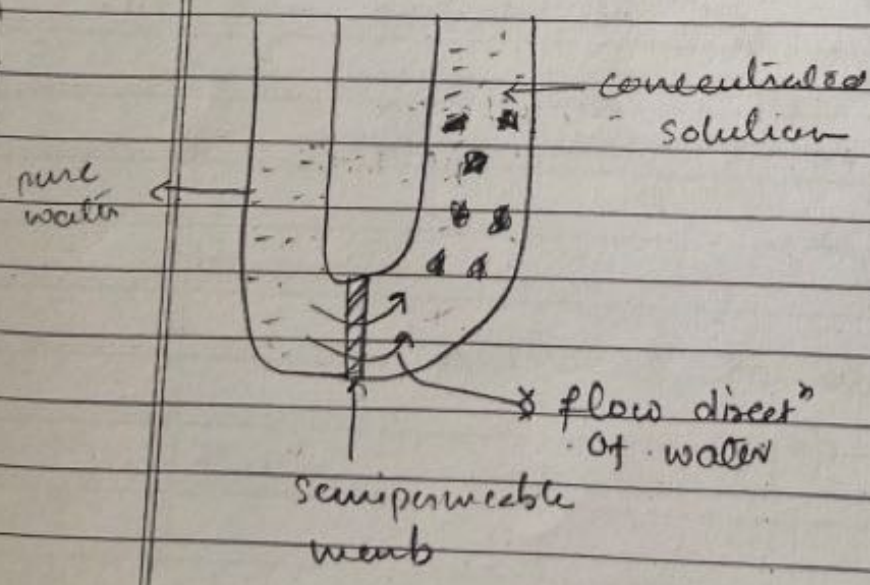 concentrated
solution
pure
water
flow directⁿ
of water
semipermeable
memb